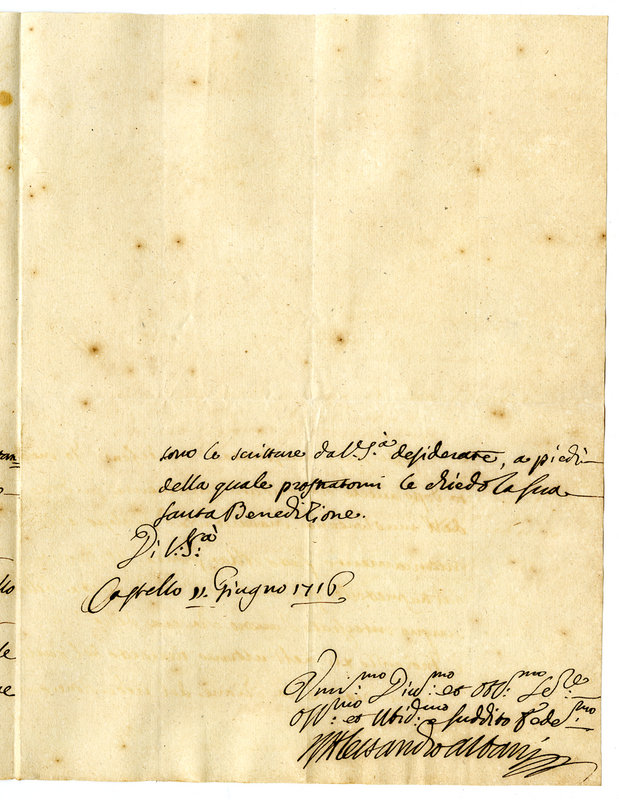 sono le scritture da V.S.tà desiderate, a piedi
della quale prostratomi le chiedo la sua
santa Benedizione.
Di V. S.tà
Castello 11. Giugno 1716
Um:mo Div:mo et Obb:mo Se:re
Oss:mo et Ubid:mo e suddito Fede:mo
Alessandro Albani